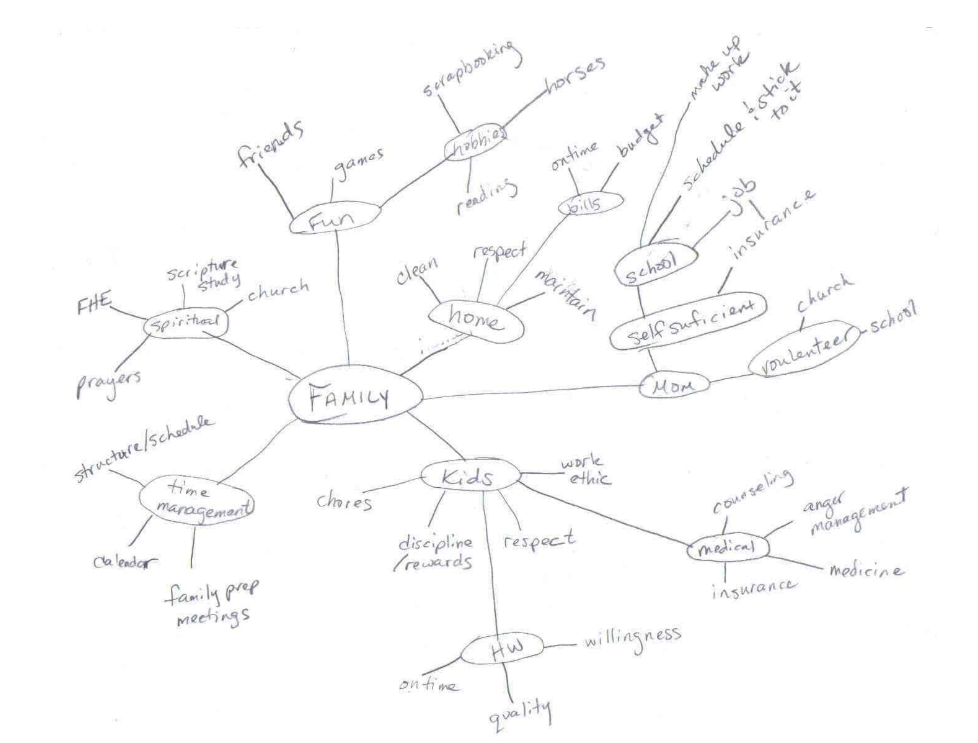 scrapbooking
horses
hobbies
reading
friends
games
Fun
make up
work
schedule & stick
to it
job
school
insurance
self suficient
ontime
budget
bills
clean
respect
maintain
home
church
school
voulenteer
MOM
FHE
scripture
study
church
spiritual
prayers
FAMILY
structure/schedule
time
management
Calendar
family prep
meetings
Kids
work
ethic
chores
discipline
/rewards
respect
counseling
anger
management
medical
medicine
insurance
HW
willingness
on time
quality